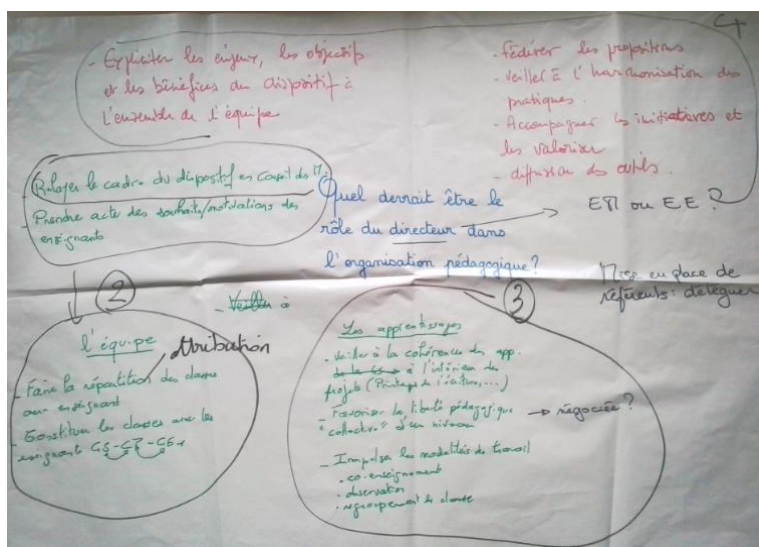 - Expliciter les enjeux, les objectifs
et les bénéfices du dispositif à
l'ensemble de l'équipe
. fédérer les propositions
- veiller à l'harmonisation des
pratiques.
- Accompagner les initiatives et
les valoriser
- diffusion des outils.
- Relayer le cadre du dispositif en conseil des M.
- Prendre acte des souhaits/motivations des
enseignants
Quel devrait être le
rôle du directeur dans
l'organisation pédagogique?
EM ou EE?
Mise en place de
référents: déléguer
2
- Veiller à
3
l'équipe
Attribution
- Faire la répartition des classes
aux enseignants
- Constituer les classes avec les
enseignants GS-CP-CE1
Les apprentissages
- Veiller à la cohérence des app.
à l'intérieur des
projets (Printemps de l'écriture,...)
- Favoriser la liberté pédagogique
"collective" d'un niveau
→ négociée?
- Impulser les modalités de travail
. co-enseignement
. observation
. regroupement de classe